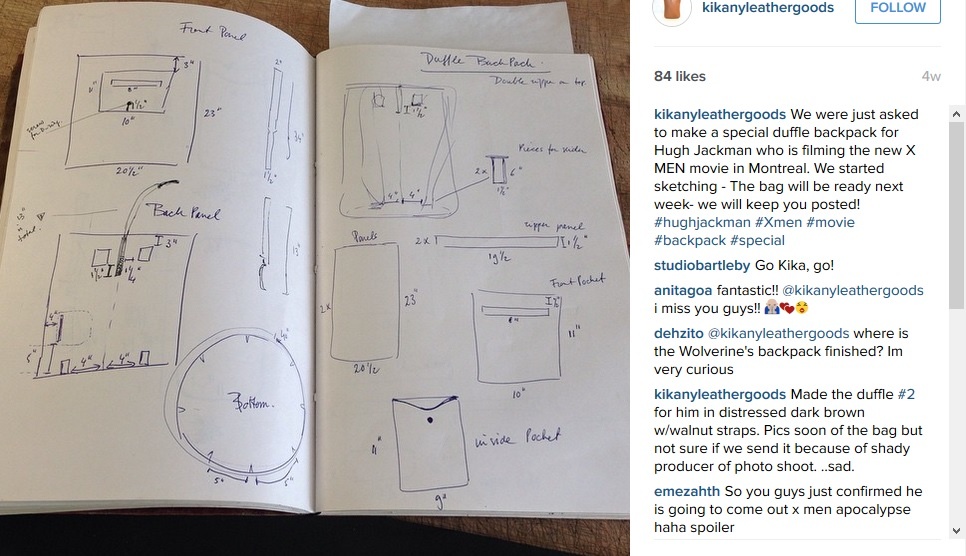 Front Panel
3"
8"
1½"
10"
23"
20½"
2"
1½"
Back Panel
3"
13"
4"
4"
4"
Bottom.
5"
Duffle BackPack
Double zipper on top
1½"
4"
4"
Pieces for slider
2x
6"
1½"
zipper panel
2x
1½"
19½
Panels
2x
23"
20½
Front Pocket
8"
11"
10"
inside Pocket
9"
kikanyleathergoods
FOLLOW
84 likes
4w
kikanyleathergoods We were just asked
to make a special duffle backpack for
Hugh Jackman who is filming the new X
MEN movie in Montreal. We started
sketching - The bag will be ready next
week- we will keep you posted!
#hughjackman #Xmen #movie
#backpack #special
studiobartleby Go Kika, go!
anitagoa fantastic!! @kikanyleathergoods
i miss you guys!!
dehzito @kikanyleathergoods where is
the Wolverine's backpack finished? Im
very curious
kikanyleathergoods Made the duffle #2
for him in distressed dark brown
w/walnut straps. Pics soon of the bag but
not sure if we send it because of shady
producer of photo shoot. ..sad.
emezahth So you guys just confirmed he
is going to come out x men apocalypse
haha spoiler